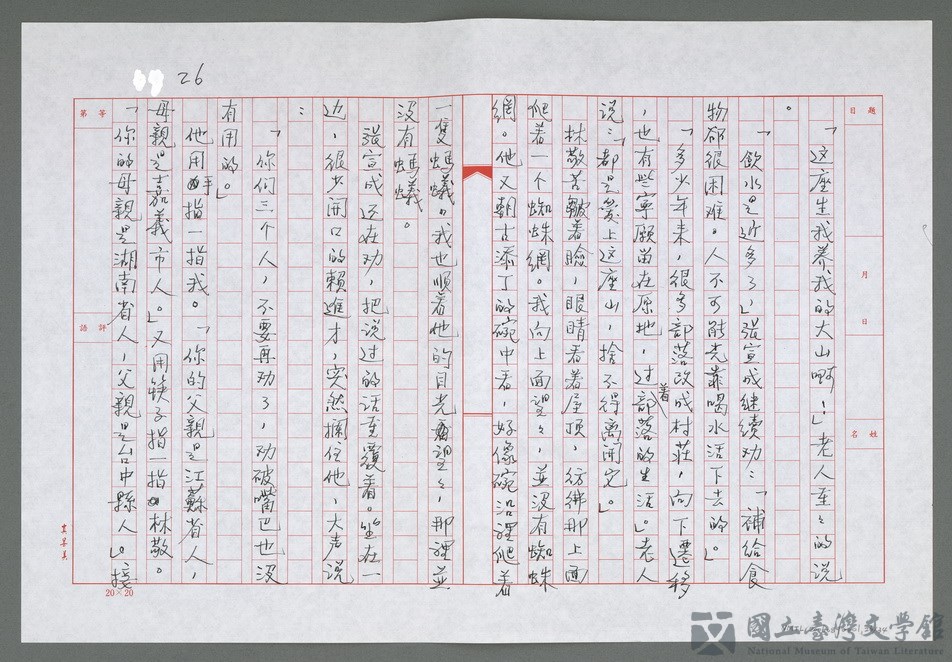 26
題目
月
日
姓名
「這座生我养我的大山啊!」老人至々的说
。
「飲水是近多了」張宣成继续劝:「補给食
物都很困难。人不可能光靠喝水活下去的。」
「多少年来,很多部落改成村莊,向下遷移
,也有些寧願留在原地,过着部落的生活。」老人
说:「都是爱上这座山,捨不得离開它。」
林敬苦皺着臉,眼睛看着屋頂,彷彿那上面
爬着一个蜘蛛網。我向上面望々,並没有蜘蛛
網。他又朝古添丁的碗中看,好像碗沿裡爬着
一隻螞蟻,我也順着他的目光望々,那裡並
没有螞蟻。
張宣成还在劝,把说过的话重覆着。坐在一
边,很少开口的賴進才,突然攔住他,大声说
:
「你们三个人,不要再劝了,劝破嘴巴也没
有用的。」
他用手指一指我。「你的父親是江蘇省人,
母親是嘉義市人。」又用筷子指一指林敬。
「你的母親是湖南省人,父親是台中縣人。」接
等第
評語
20×20
國立臺灣文學館
National Museum of Taiwan Literature